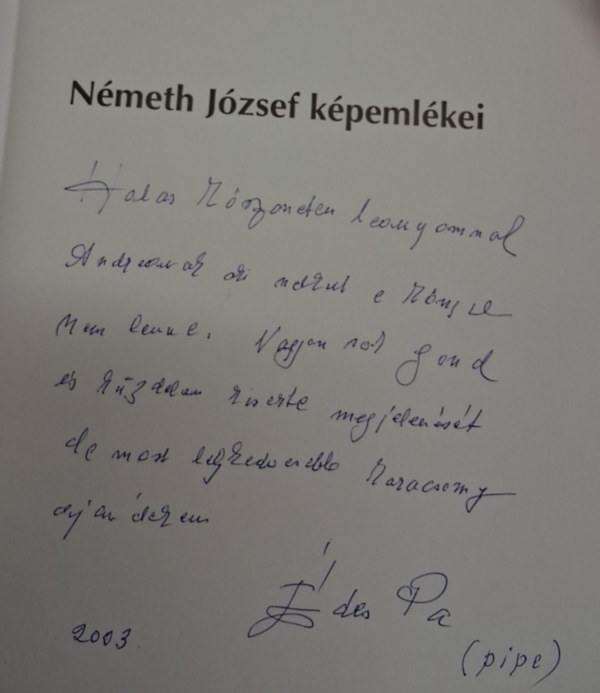 Németh József képemlékei
Hálás Köszönetem leanyomnal
Andreanak aki nelkul e Könyv
nem lenne. Nagyon sok gond
és küzdelem kiserte megjelenését
de most legkedvesebb Karacsony
ajandekom
Édes Pa
2003.
(pipe)